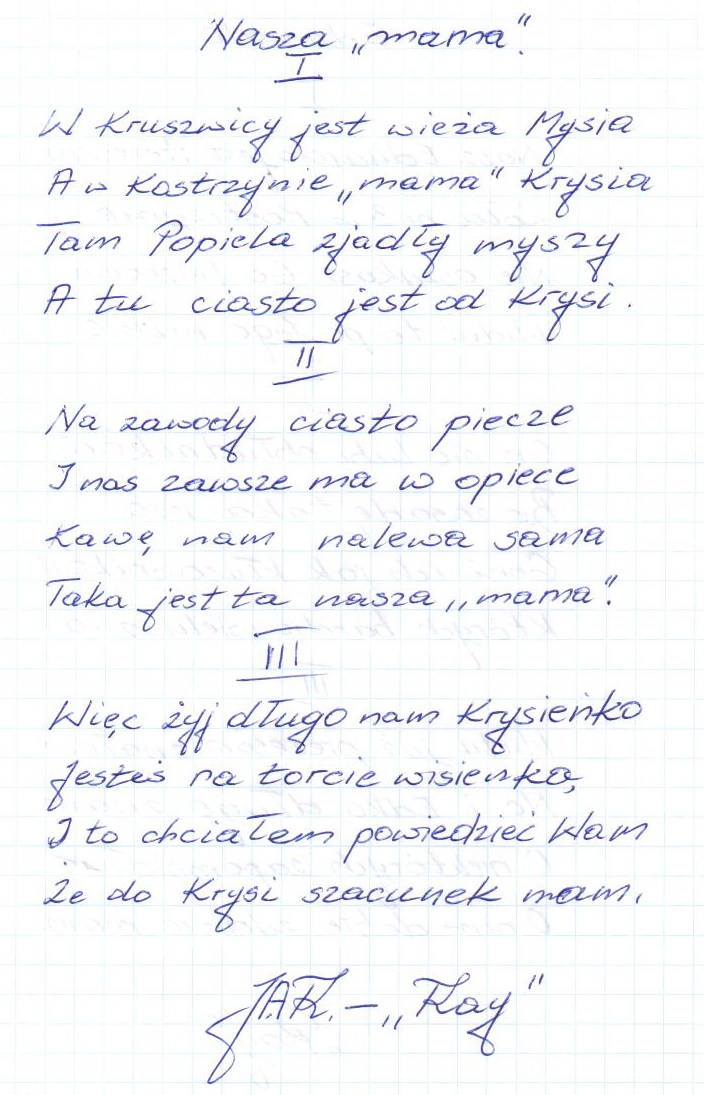 Nasza „mama".
I
W Kruszwicy jest wieża Mysia
A w Kostrzynie „mama" Krysia
Tam Popiela zjadły myszy
A tu ciasto jest od Krysi.
II
Na zawody ciasto piecze
I nas zawsze ma w opiece
Kawę nam nalewa sama
Taka jest ta nasza „mama".
III
Więc żyj długo nam Krysieńko
Jesteś na torcie wisienką,
I to chciałem powiedzieć Wam
Że do Krysi szacunek mam.
J.A.K. – „Kay"